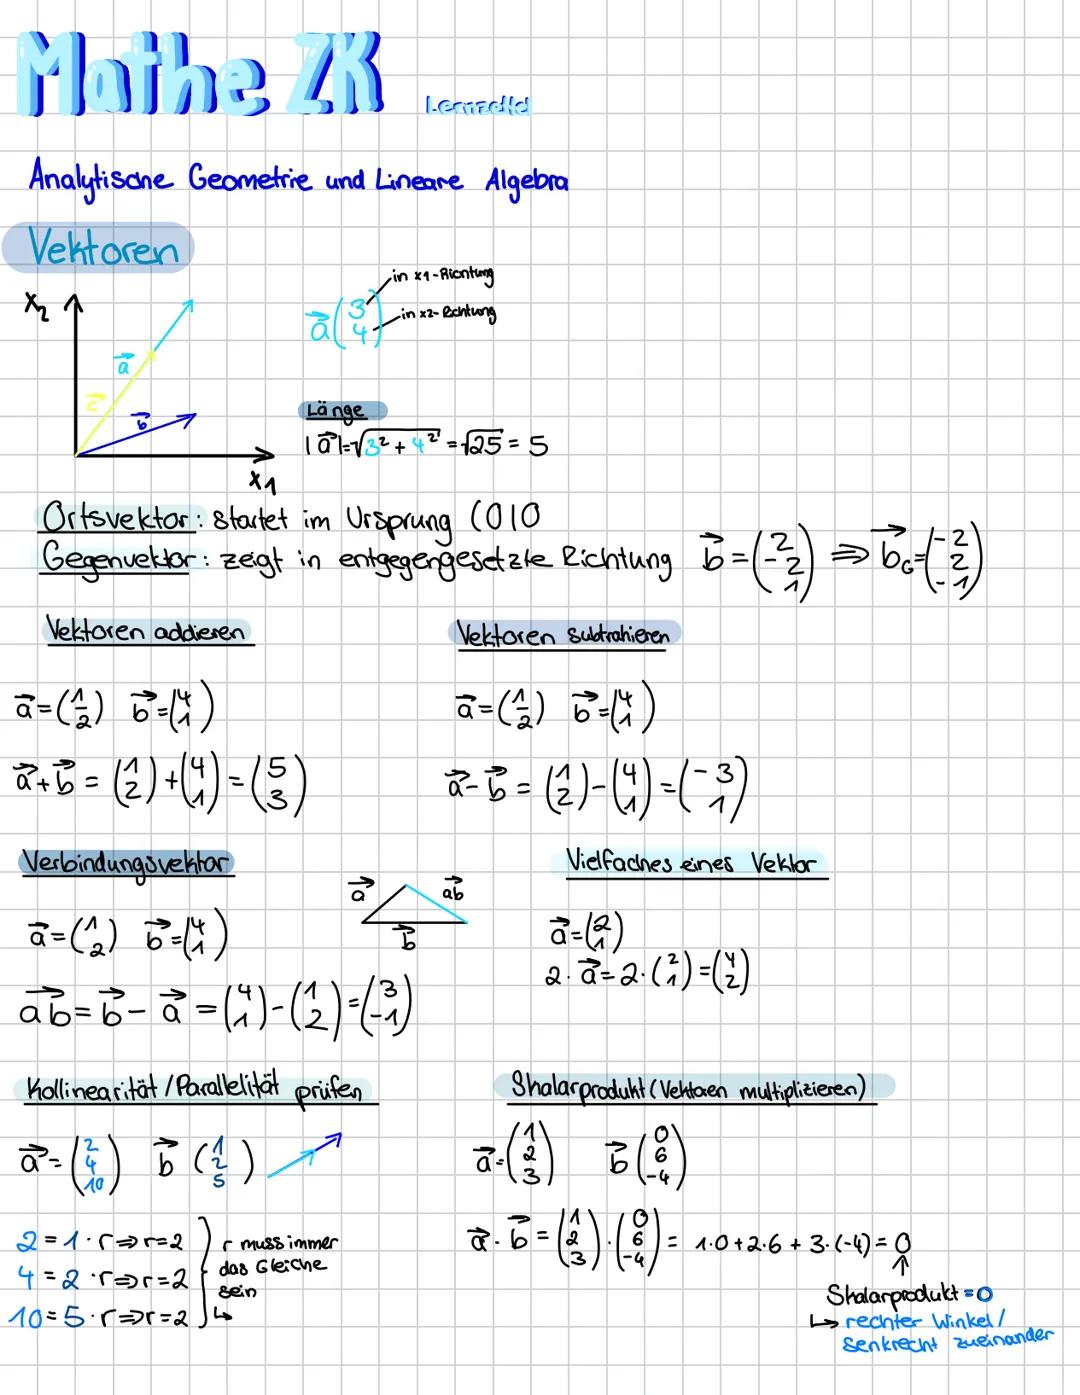 Mathe ZK Lernzettel
Analytische Geometrie und Lineare Algebra
Vektoren
x₂
a⃗
c⃗
b⃗
x₁
a⃗ (3 4)
in x1-Richtung
in x2-Richtung
Länge
|a⃗|=√3² + 4² = √25 = 5
Ortsvektor: startet im Ursprung (0|0
Gegenvektor: zeigt in entgegengesetzte Richtung b⃗ = (2 -2 1) ⇒ b⃗G = (-2 2 -1)
Vektoren addieren
a⃗ = (1 2) b⃗ = (4 1)
a⃗ + b⃗ = (1 2) + (4 1) = (5 3)
Vektoren subtrahieren
a⃗ = (1 2) b⃗ = (4 1)
a⃗ - b⃗ = (1 2) - (4 1) = (-3 1)
Verbindungsvektor
a⃗ ab⃗
b⃗
a⃗ = (1 2) b⃗ = (4 1)
ab⃗ = b⃗ - a⃗ = (4 1) - (1 2) = (3 -1)
Vielfaches eines Vektor
a⃗ = (2 1)
2 · a⃗ = 2 · (2 1) = (4 2)
Kollinearität / Parallelität prüfen
a⃗ = (2 4 10) b⃗ (1 2 5)
2 = 1 · r ⇒ r = 2
4 = 2 · r ⇒ r = 2
10 = 5 · r ⇒ r = 2
r muss immer
das Gleiche
sein
↳
Skalarprodukt (Vektoren multiplizieren)
a⃗ = (1 2 3) b⃗ (0 6 -4)
a⃗ · b⃗ = (1 2 3) · (0 6 -4) = 1·0 + 2·6 + 3·(-4) = 0
Skalarprodukt = 0
↳ rechter Winkel /
senkrecht zueinander